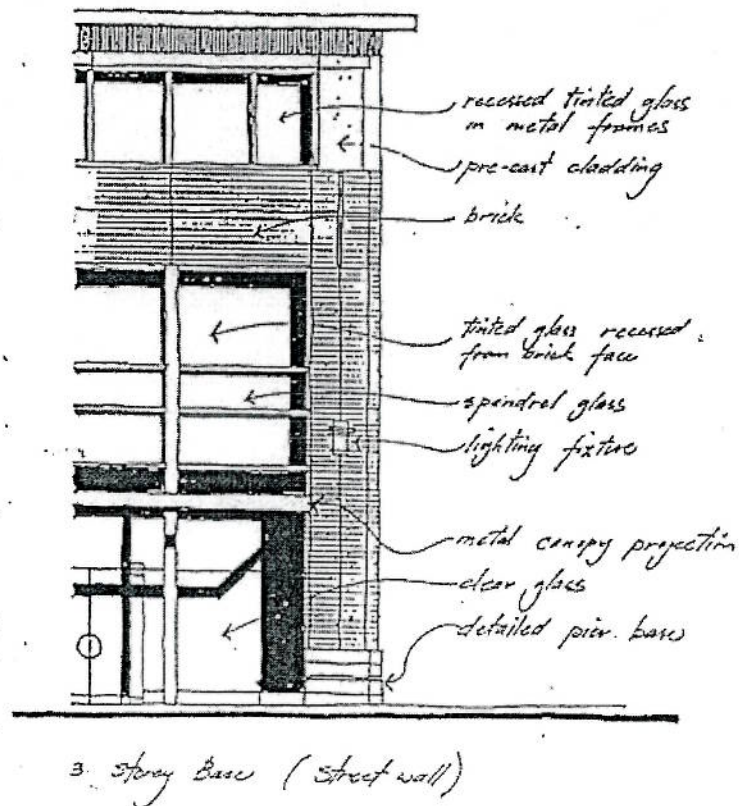 recessed tinted glass
in metal frames
pre-cast cladding
brick
tinted glass recessed
from brick face
spandrel glass
lighting fixture
metal canopy projection
clear glass
detailed pier base
3 Storey Base (Street wall)